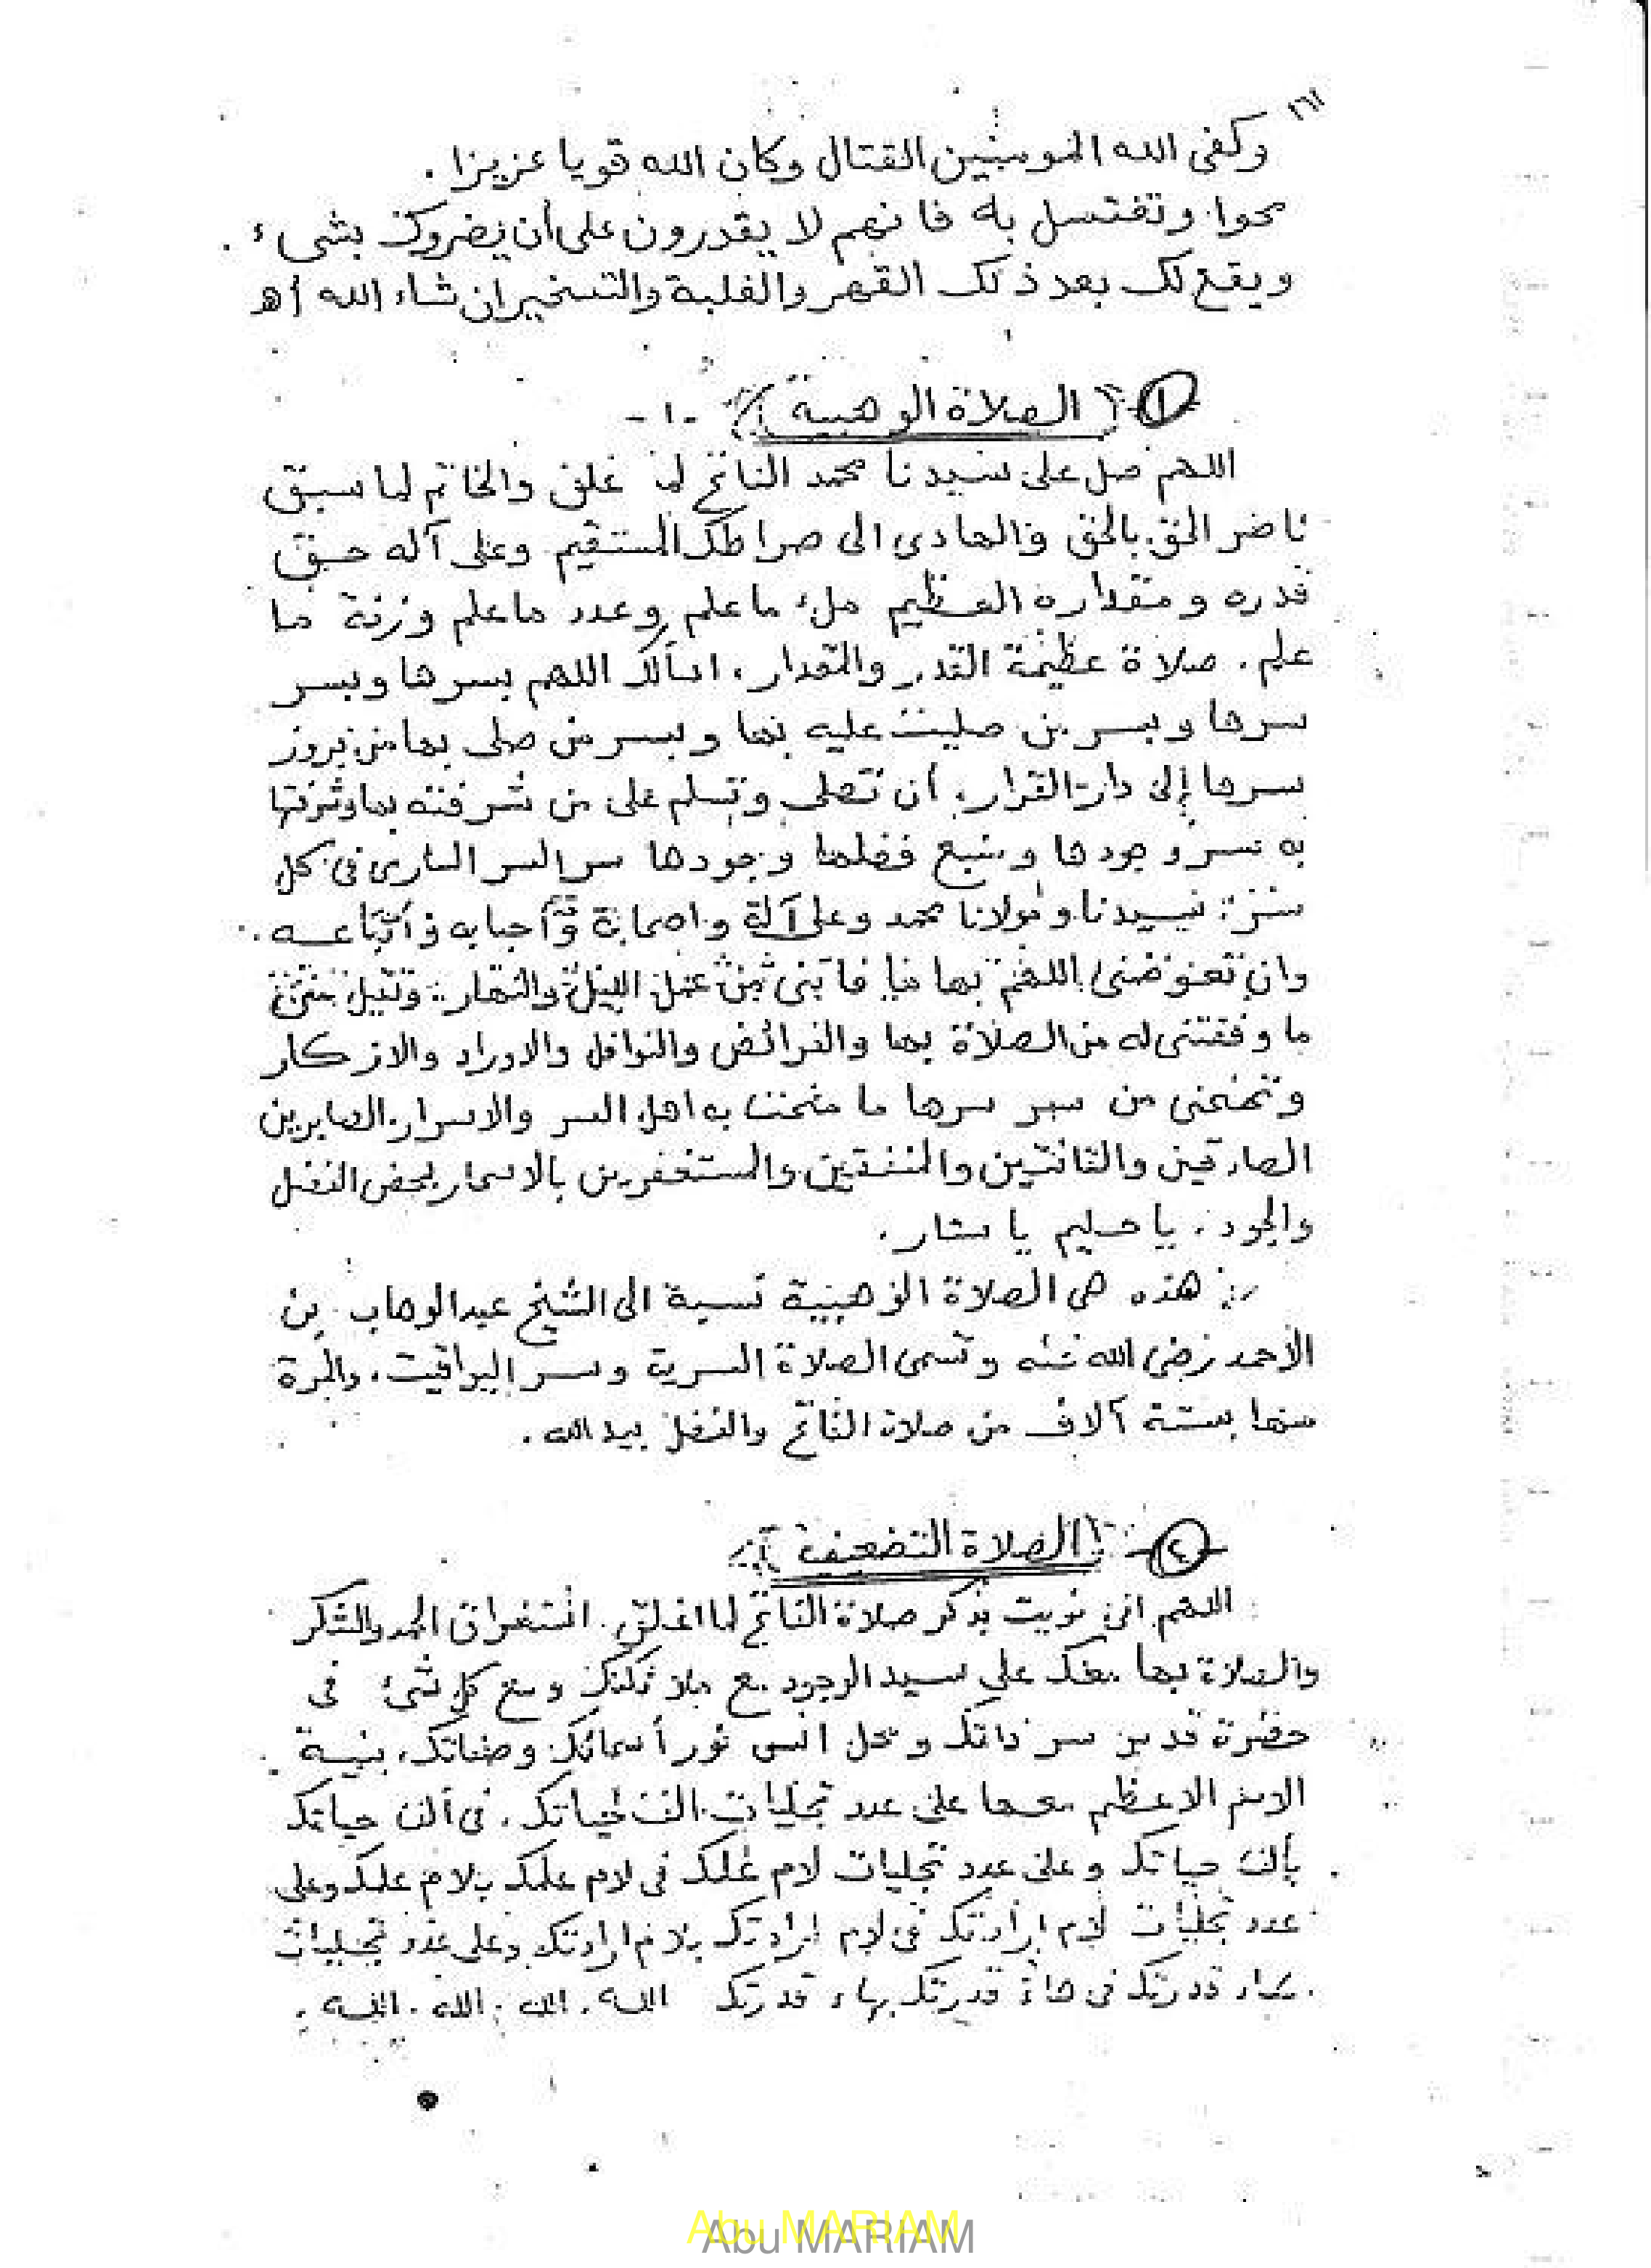 ٢٦١
وكفى الله المومنين القتال وكان الله قويا عزيزا .
محوا وتغتسل به فانهم لا يقدرون على أن يضروك بشىء .
ويقع لك بعد ذلك القهر والغلبة والتسخير ان شاء الله أهـ
١ (الصلاة الوهبية) - ١ -
اللهم صل على سيدنا محمد الفاتح لما غلق والخاتم لما سبق
ناصر الحق بالحق والهادى الى صراطك المستقيم وعلى آله حق
قدره ومقداره العظيم ملء ما علم وعدد ما علم وزنة ما
علم . صلاة عظيمة القدر والمقدار . اسألك اللهم بسرها وبسر
سرها وبسر من صليت عليه بها وبسر من صلى بها من بروز
سرها إلى دار القرار . أن تصلى وتسلم على من شرفته بها وشرفتها
به سر وجودها ومنبع فضلها وجودها سر السر السارى فى كل
سر : سيدنا ومولانا محمد وعلى آله واصحابه وأحبابه وأتباعه .
وان تعوضنى اللهم بها ما فاتنى من عمل الليل والنهار . وتقبل منى
ما وفقتنى له من الصلاة بها والفرائض والنوافل والاوراد والاذكار
وتمنحنى من سر سرها ما منحت به اهل السر والاسرار الصابرين
الصادقين والقانتين والمنفقين والمستغفرين بالاسحار بمحض الفضل
والجود . يا حليم يا ستار .
هذه هى الصلاة الوهبية نسبة الى الشيخ عبد الوهاب بن
الأحمد رضى الله عنه وتسمى الصلاة السرية وسر اليواقيت . والمرة
منها بستة آلاف من صلاة الفاتح والفضل بيد الله .
٢ (الصلاة التضعيف)
اللهم انى نويت بذكر صلاة الفاتح لما اغلق . استغراق الحمد والشكر
والصلاة بها منك على سيد الوجود مع ملائكتك ومع كل شىء فى
حضرة قدس سر ذاتك ومحل انس نور أسمائك وصفاتك . بنية
الاسم الاعظم معها على عدد تجليات الف حياتك . فى ألف حياتك
بألف حياتك وعلى عدد تجليات لام علمك فى لام علمك بلام علمك وعلى
عدد تجليات لام ارادتك فى لام ارادتك بلام ارادتك وعلى عدد تجليات
هاء قدرتك فى هاء قدرتك بهاء قدرتك الله . الله . الله . الله .
Abu MARIAM